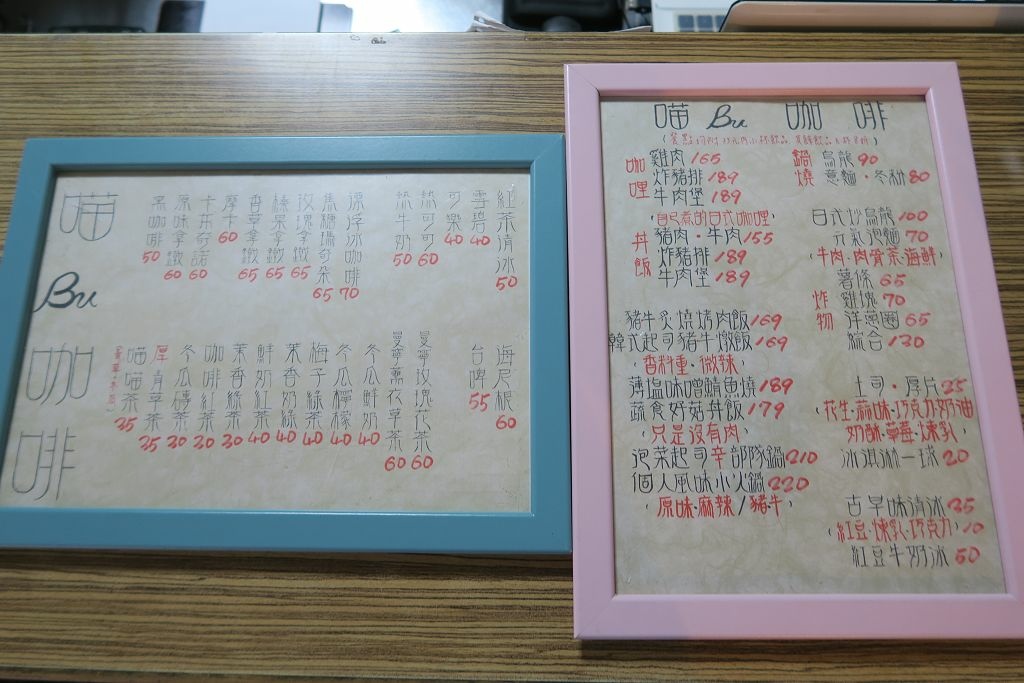 喵 Bu 咖啡
黑咖啡 50
原味拿鐵 60
卡布奇諾 60
摩卡 60
香草拿鐵 65
榛果拿鐵 65
玫瑰拿鐵 65
焦糖瑪奇朵 65
漂浮冰咖啡 70
熱牛奶 50
熱可可 60
可樂 40
雪碧 40
紅茶清冰 50
喵喵茶 35
厚青草茶 35
冬瓜磚茶 30
咖啡紅茶 30
茉香綠茶 30
鮮奶紅茶 40
茉香奶綠 40
梅子綠茶 40
冬瓜檸檬 40
冬瓜鮮奶 40
曼寧薰衣草茶 60
曼寧玫瑰花茶 60
台啤 55
海尼根 60
喵 Bu 咖啡
咖哩
雞肉 165
炸豬排 189
牛肉堡 189
(自己煮的日式咖哩)
丼飯
豬肉·牛肉 155
炸豬排 189
牛肉堡 189
豬牛炙燒烤肉飯 169
韓式起司豬牛燉飯 169
(香料重·微辣)
薄塩味噌鯖魚燒 189
蔬食好菇丼飯 179
(只是沒有肉)
泡菜起司辛部隊鍋 210
個人風味小火鍋 220
(原味·麻辣/豬·牛)
鍋燒
烏龍 90
意麵·冬粉 80
日式炒烏龍 100
元氣泡麵 70
(牛肉·肉骨茶·海鮮)
炸物
薯條 65
雞塊 70
洋蔥圈 65
綜合 130
土司·厚片 25
(花生·蒜味·巧克力·奶油
奶酥·草莓·煉乳)
冰淇淋一球 20
古早味清冰 35
(紅豆·煉乳·巧克力) 10
紅豆牛奶冰 50